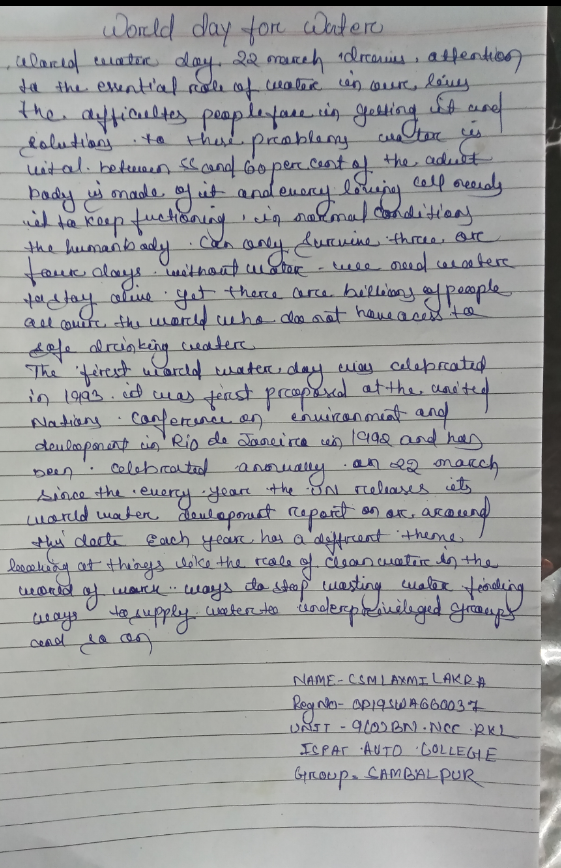 World day for Water
World water day 22 march draws attention
to the essential role of water in our lives
the difficultes people face in getting it and
solutions to these problems water is
vital. between 55 and 60 per cent of the adult
body is made of it and every living cell needs
it to keep fuctioning, in normal conditions
the human body can only survive three or
four days without water - we need water
to stay alive. yet there are billions of people
all over the world who do not have acess to
safe drinking water.
The first world water day was celebrated
in 1993. it was first proposed at the united
Nations conference on environment and
development in Rio de Janeiro in 1992 and has
been celebrated annually on 22 march
since the every year the UN releases its
world water development report on or around
this date each year has a different theme,
looking at things like the role of clean water in the
world of work ways to stop wasting water finding
ways to supply water to underprivileged groups
and so on
NAME - CSM LAXMI LAKRA
Reg No - OR19SWA660037
UNIT - 9(O) BN. NCC. RKL
ISPAT AUTO COLLEGE
Group - SAMBALPUR